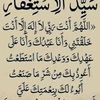 سَيِّدُ الِاسْتِغْفَارِ
«اللَّهُمَّ أَنْتَ رَبِّي لَا إِلَهَ إِلَّا أَنْتَ
خَلَقْتَنِي وَأَنَا عَبْدُكَ وَأَنَا عَلَى
عَهْدِكَ وَوَعْدِكَ مَا اسْتَطَعْتُ
أَعُوذُ بِكَ مِنْ شَرِّ مَا صَنَعْتُ
أَبُوءُ لَكَ بِنِعْمَتِكَ عَلَيَّ